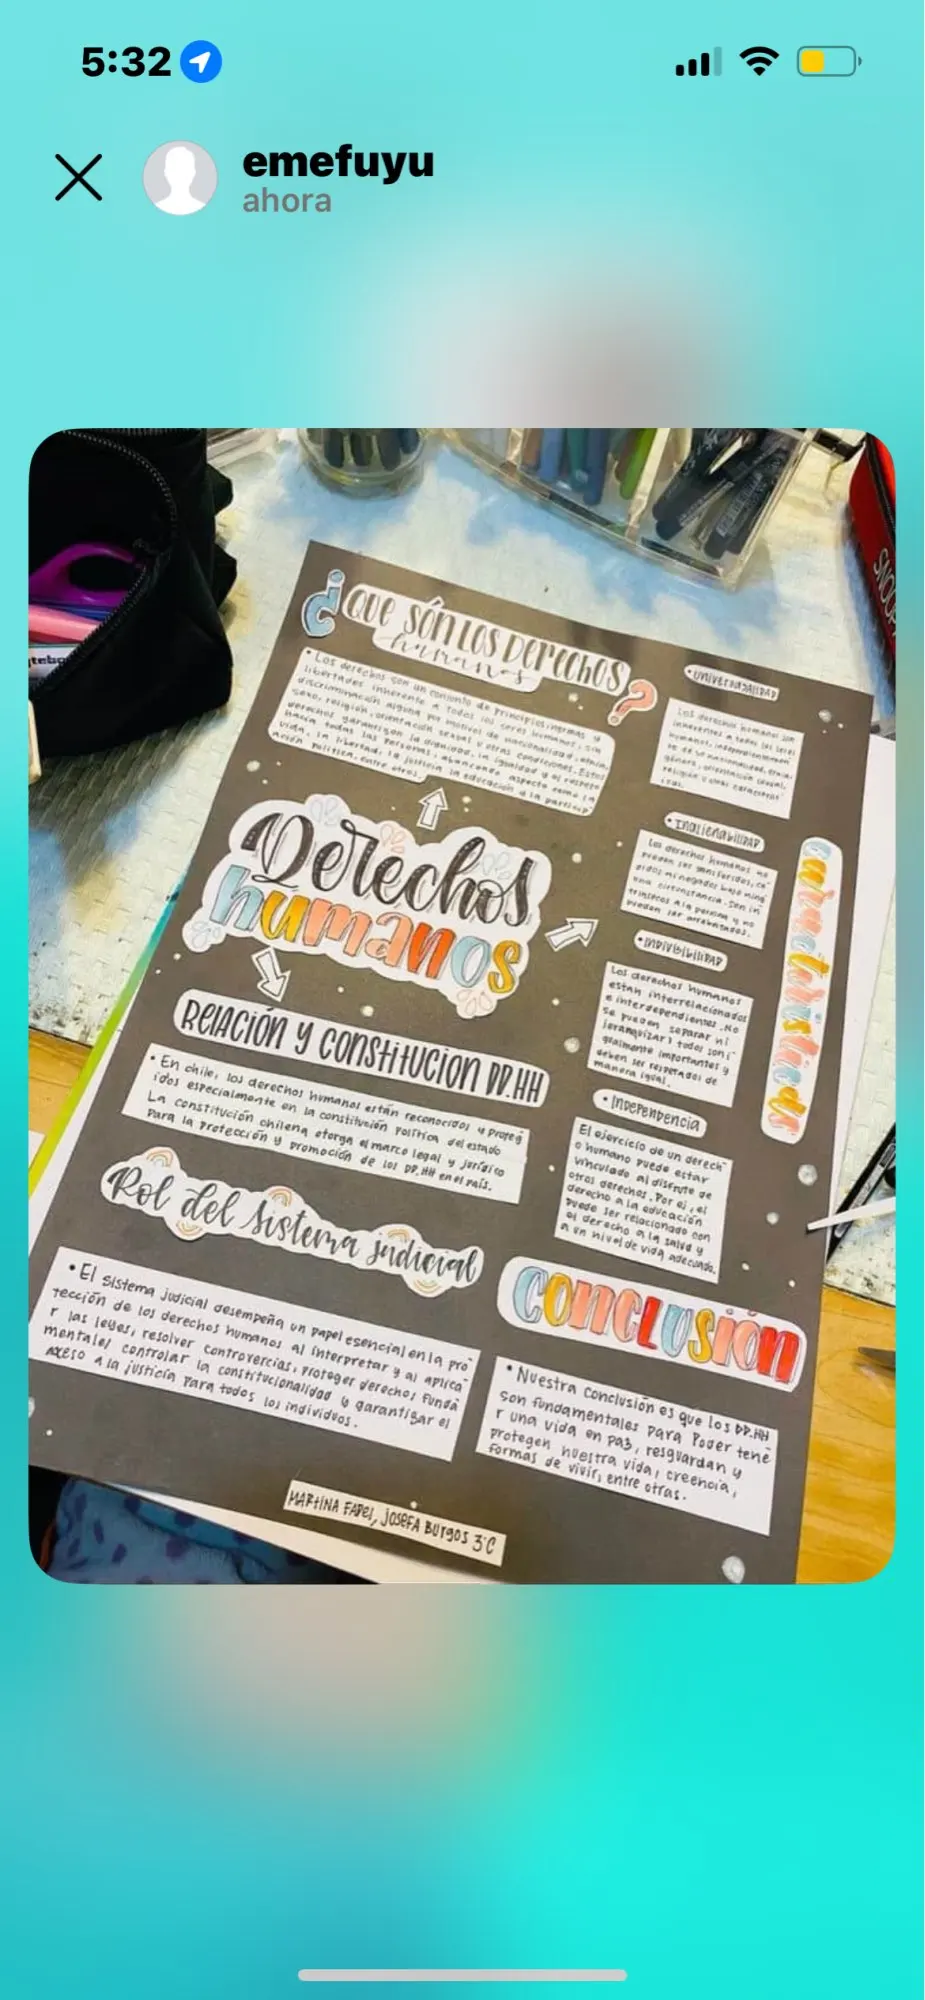 5:32
emefuyu
ahora
SNOOP
¿QUE SÓN LOS DERECHOS
humanos?
• Los derechos son un conjunto de principios, normas y
libertades inherente a todos los seres humanos, sin
discriminación alguna por motivos de nacionalidad, etnia,
sexo, religión, orientación sexual y otras condiciones. Estos
derechos garantizan la dignidad, la igualdad y el respeto
hacia todas las personas, abarcando aspectos como la
vida, la libertad, la justicia la educación a la particip
ación política, entre otros.
Derechos
humanos
RELACIÓN Y CONSTITUCION DD.HH
• En chile, los derechos humanos están reconocidos y proteg
idos especialmente en la constitución política del estado
La constitución chilena otorga el marco legal y jurídico
para la protección y promoción de los DD.HH en el país.
Rol del sistema judicial
• El sistema judicial desempeña un papel esencial en la pro
tección de los derechos humanos al interpretar y al aplica
r las leyes, resolver controvercias, proteger derechos funda
mentales controlar la constitucionalidad y garantizar el
acceso a la justicia para todos los individuos.
características
• UNIVERSALIDAD
Los derechos humanos son
inherentes a todos los seres
humanos, independientemen
te de su nacionalidad, etnia,
género, orientación sexual,
religión u otras caracterís
ticas.
• INALIENABILIDAD
Los derechos humanos no
pueden ser transferidos,
ni negados bajo ning
una circunstancia. Son in
trínsecos a la persona y no
pueden ser arrebatados.
• INDIVISIBILIDAD
Los derechos humanos
estan interrelacionados
e interdependientes. No
se pueden separar ni
jerarquizar; todos son i
gualmente importantes y
deben ser respetados de
manera igual.
• INDEPENDENCIA
El ejercicio de un derech
o humano puede estar
vinculado al disfrute de
otros derechos. Por ej, el
derecho a la educación
puede ser relacionado con
el derecho a la salud y
a un nivel de vida adecuado.
CONCLUSIÓN
• Nuestra conclusión es que los DD.HH
son fundamentales para poder tene
r una vida en paz, resguardan y
protegen nuestra vida, creencia,
formas de vivir, entre otras.
MARTINA FAPEI, JOSEFA BURGOS 3°C